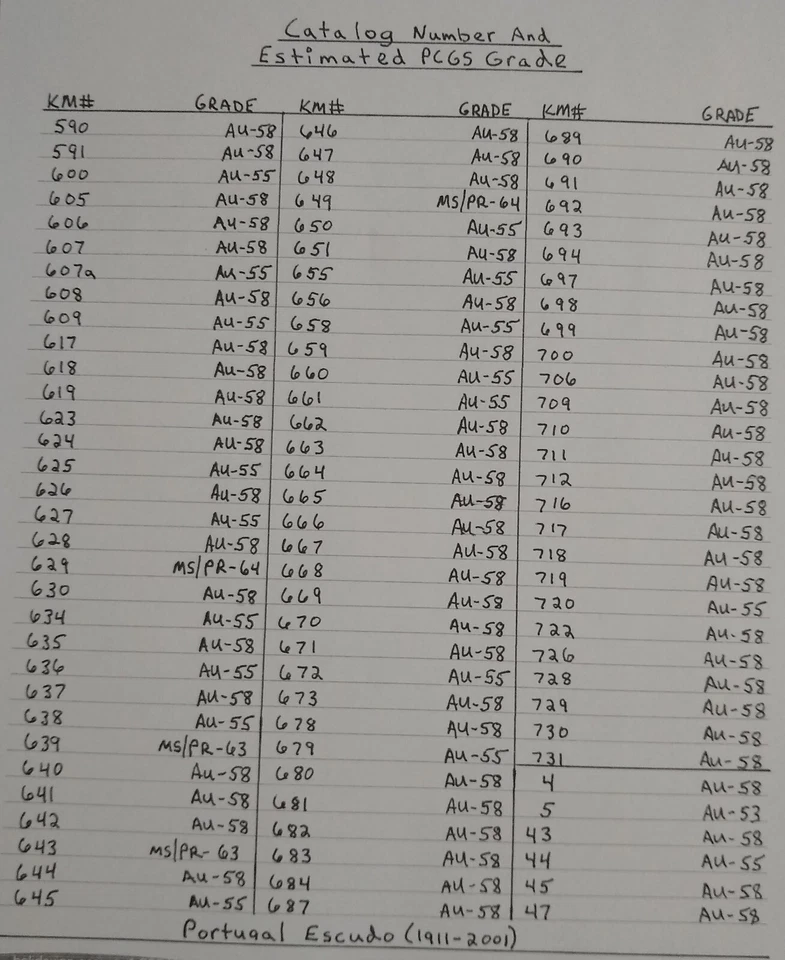 Catalog Number And
Estimated PCGS Grade
KM# GRADE KM# GRADE KM# GRADE
590 AU-58 646 AU-58 689 AU-58
591 AU-58 647 AU-58 690 AU-58
600 AU-55 648 AU-58 691 AU-58
605 AU-58 649 MS/PR-64 692 AU-58
606 AU-58 650 AU-55 693 AU-58
607 AU-58 651 AU-58 694 AU-58
607a AU-55 655 AU-55 697 AU-58
608 AU-58 656 AU-58 698 AU-58
609 AU-55 658 AU-55 699 AU-58
617 AU-58 659 AU-58 700 AU-58
618 AU-58 660 AU-55 706 AU-58
619 AU-58 661 AU-55 709 AU-58
623 AU-58 662 AU-58 710 AU-58
624 AU-58 663 AU-58 711 AU-58
625 AU-55 664 AU-58 712 AU-58
626 AU-58 665 AU-58 716 AU-58
627 AU-55 666 AU-58 717 AU-58
628 AU-58 667 AU-58 718 AU-58
629 MS/PR-64 668 AU-58 719 AU-58
630 AU-58 669 AU-58 720 AU-55
634 AU-55 670 AU-58 722 AU-58
635 AU-58 671 AU-58 726 AU-58
636 AU-55 672 AU-55 728 AU-58
637 AU-58 673 AU-58 729 AU-58
638 AU-55 678 AU-58 730 AU-58
639 MS/PR-63 679 AU-55 731 AU-58
640 AU-58 680 AU-58 4 AU-58
641 AU-58 681 AU-58 5 AU-53
642 AU-58 682 AU-58 43 AU-58
643 MS/PR-63 683 AU-58 44 AU-55
644 AU-58 684 AU-58 45 AU-58
645 AU-55 687 AU-58 47 AU-58
Portugal Escudo (1911-2001)